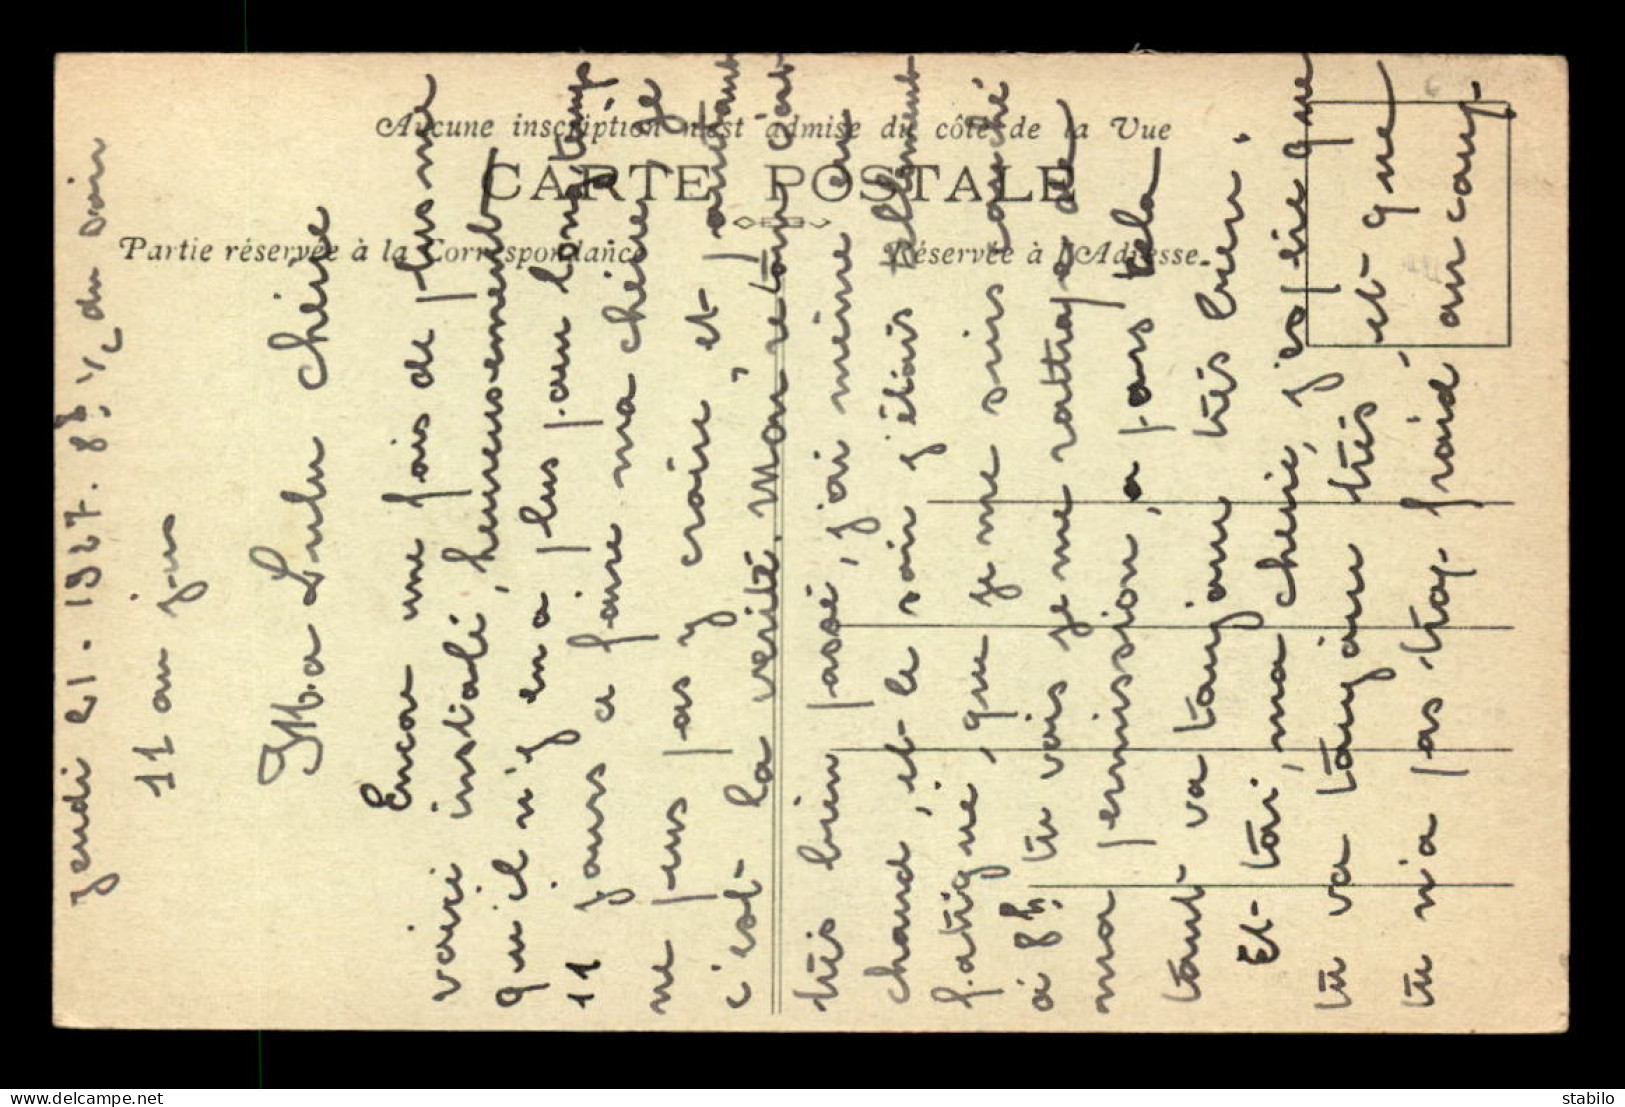 Aucune inscription n'est admise du côté de la Vue
CARTE POSTALE
Partie réservée à la Correspondance
Réservée à l'Adresse.
jeudi 21. 1927. 8h 1/2 du soir
11 au jus
Ma Lulu chérie
Encor une fois de plus me
voici installé, heureusement
qu'il n'y en a plus pour longtemps
11 jours a faire ma chérie, je
ne peus pas y croire, et pourtant
c'est la verité. Mon retour c'est
très bien passé, j'ai même eu
chaud, et le soir j'étais tellement
fatigué, que je me suis couché
à 8h, tu vois je me rattrape de
ma permission, a pars cela
tout va toujour très bien.
Et toi, ma cherie, j'espère que
tu va toujour très et que
tu n'a pas trop froid au coup
delcampe.net
stabilo